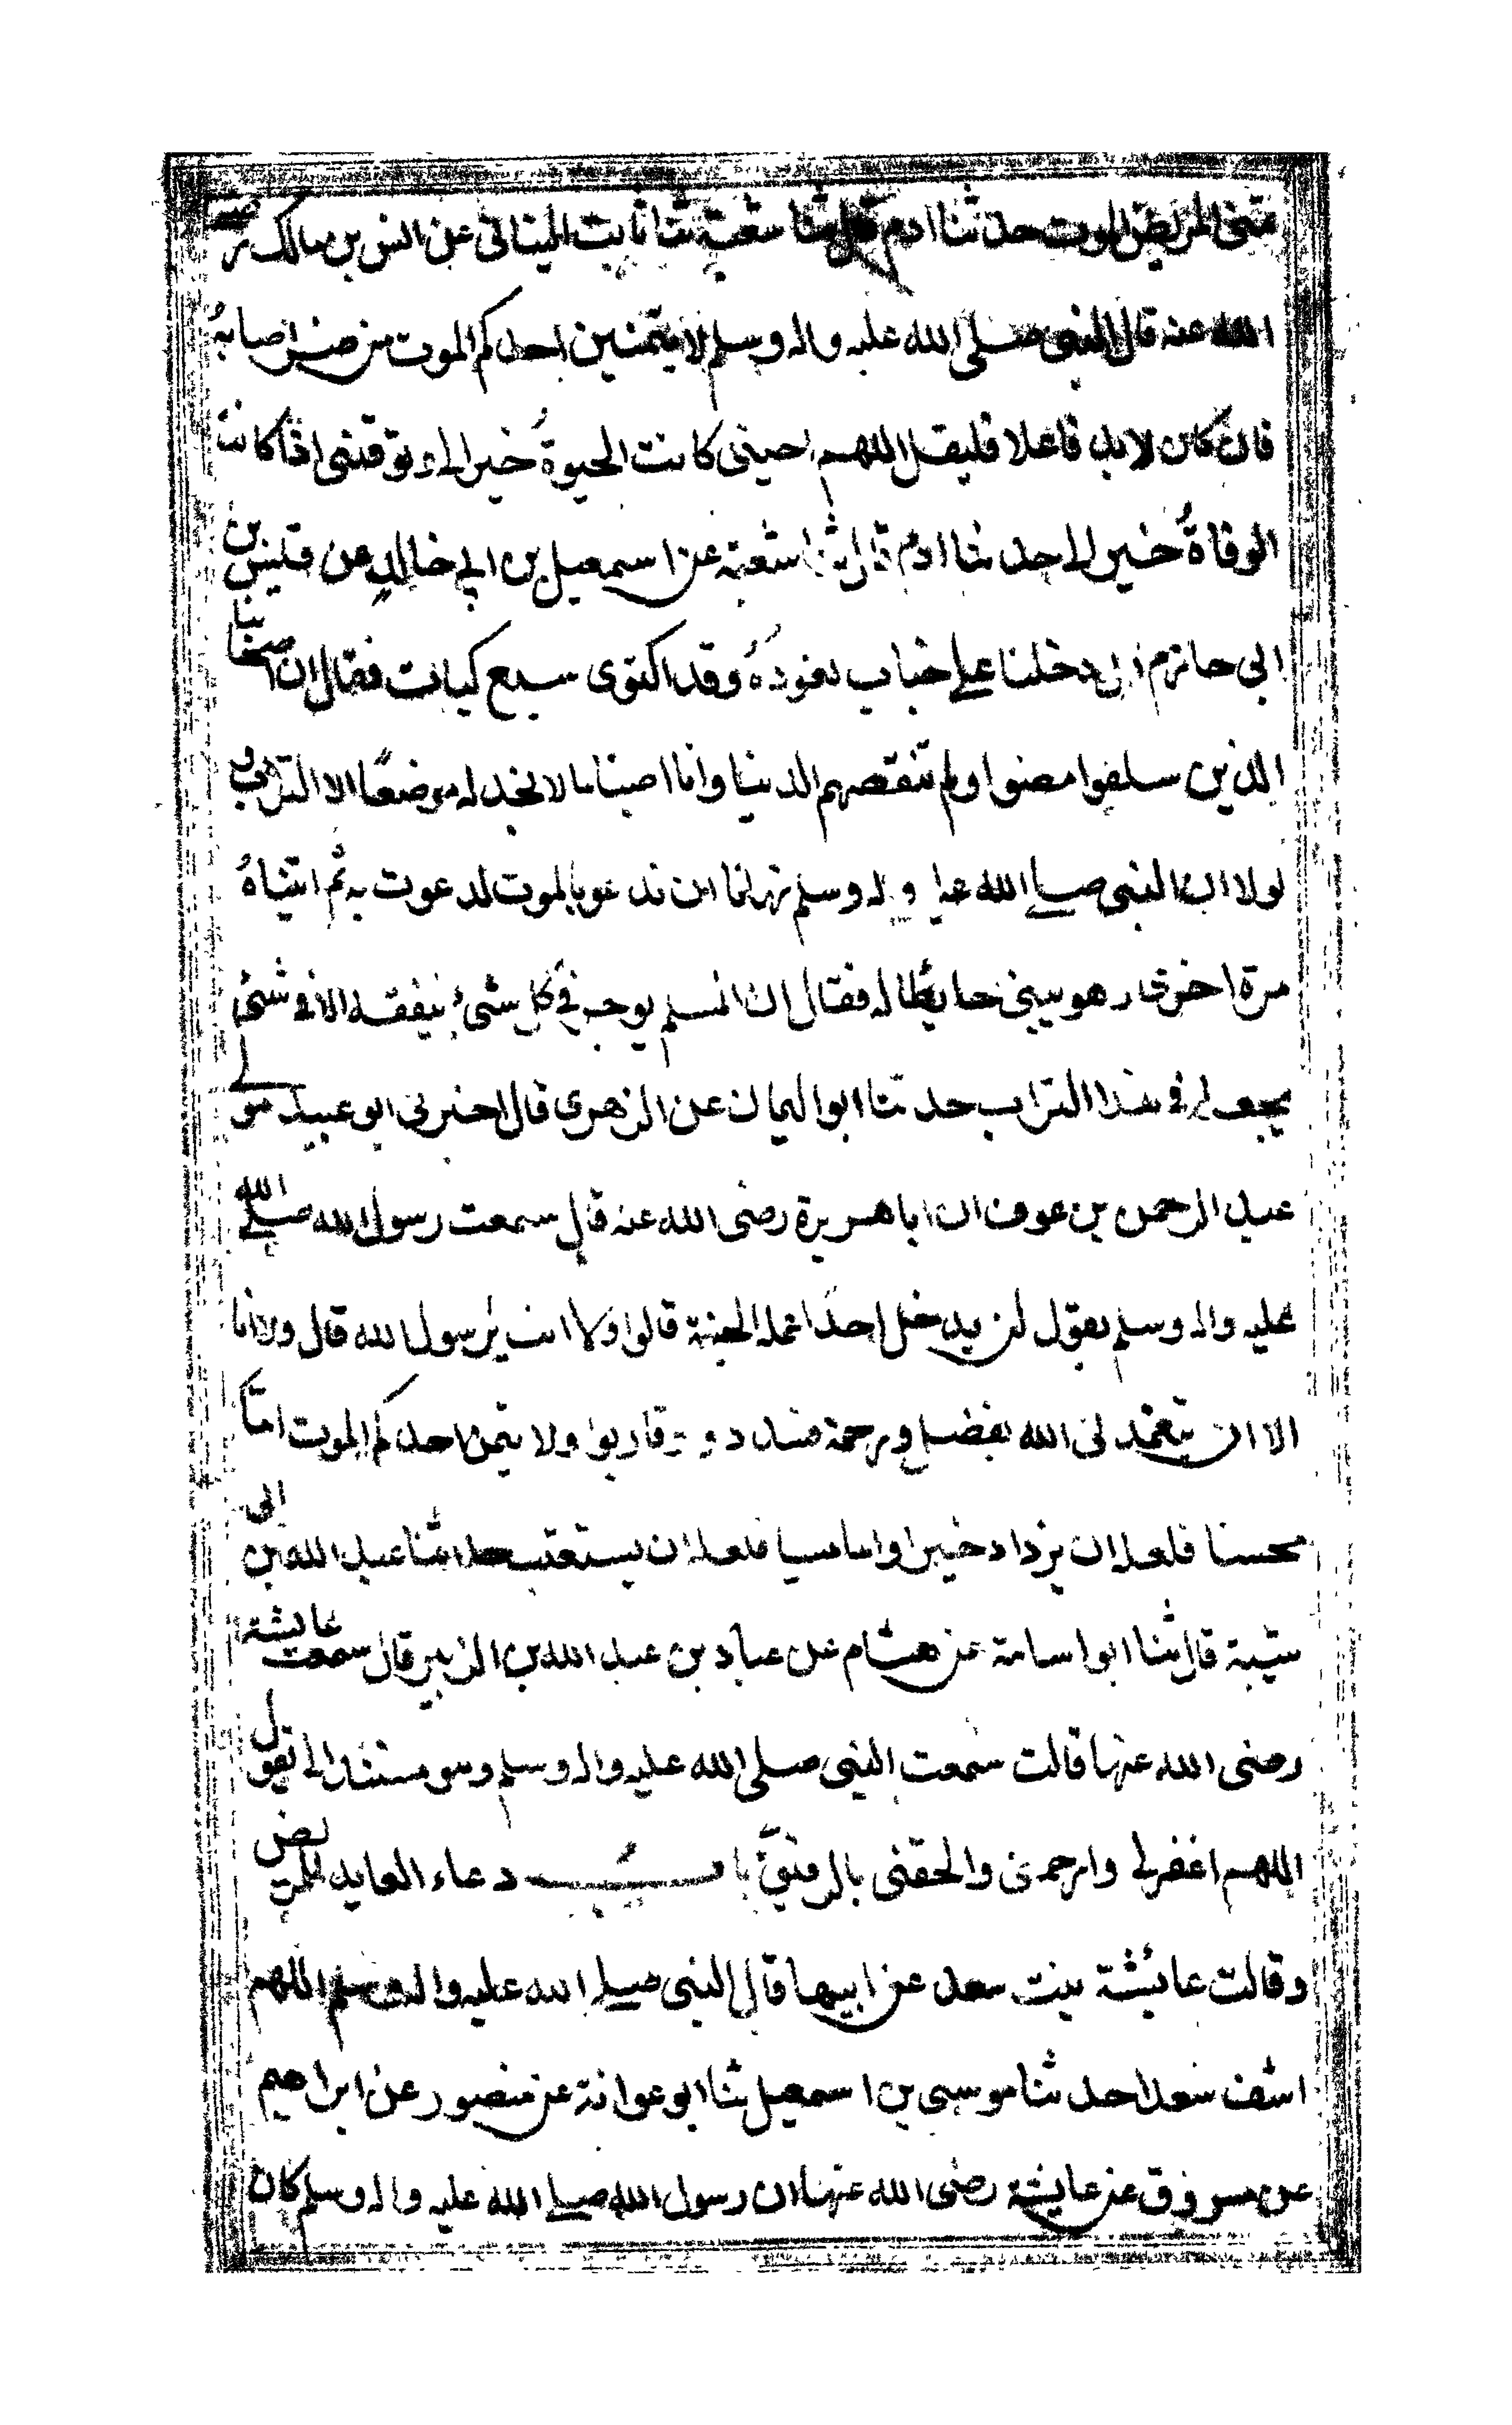 تمنى المريض الموت حدثنا ادم قال ثنا شعبة ثنا ثابت البناني عن انس بن مالك رضى
الله عنه قال النبي صلى الله عليه واله وسلم لا يتمنين احدكم الموت من ضر اصابهُ
فان كان لا بد فاعلا فليقل اللهم احينى كانت الحيوةُ خيرا لى وتوقنى اذا كانت
الوفاةُ خير لى حدثنا ادم قال ثنا شعبة عن اسمعيل بن ابي خالد عن قيس بن
ابى حازم قال دخلنا على خباب نعودهُ وقد اكتوى سبع كيات فقال ان اصحابنا
الذين سلفوا مضوا ولم تنقصهم الدنيا وانا اصبنا ما لا نجد له موضعًا الا التراب و
لولا ان النبى صلى الله عليه واله وسلم نهانا ان ندعو بالموت لدعوت به ثم اتيناهُ
مرة اخرى وهو يبنى حايطا له فقال ان المسلم يوجر في كل شئ ينفقه الا في شئ
يجعله في هذا التراب حدثنا ابو اليمان عن الزهرى قال اخبرنى ابو عبيد مولى
عبد الرحمن بن عوف ان ابا هريرة رضى الله عنه قال سمعت رسول الله صلى الله
عليه واله وسلم يقول لن يدخل احدًا عمله الجنة قالوا ولا انت يرسول الله قال ولا انا
الا ان يتغمدنى الله بفضل ورحمة فسددوا وقاربوا ولا يتمن احدكم الموت اما
محسنا فلعله ان يزداد خيرا واما مسيا فلعله ان يستعتب حدثنا عبد الله بن ابى
شيبة قال ثنا ابو اسامة عن هشام عن عباد بن عبد الله بن الزبير قال سمعت عايشة
رضى الله عنها قالت سمعت النبى صلى الله عليه واله وسلم وهو مستند الى يقول
اللهم اغفر لى وارحمنى والحقنى بالرفيق باب دعاء العايد للمريض
وقالت عائشة بنت سعد عن ابيها قال النبى صلى الله عليه واله وسلم اللهم
اشف سعدا حدثنا موسى بن اسمعيل ثنا ابو عوانة عن منصور عن ابراهيم
عن مسروق عن عايشة رضى الله عنها ان رسول الله صلى الله عليه واله وسلم كان